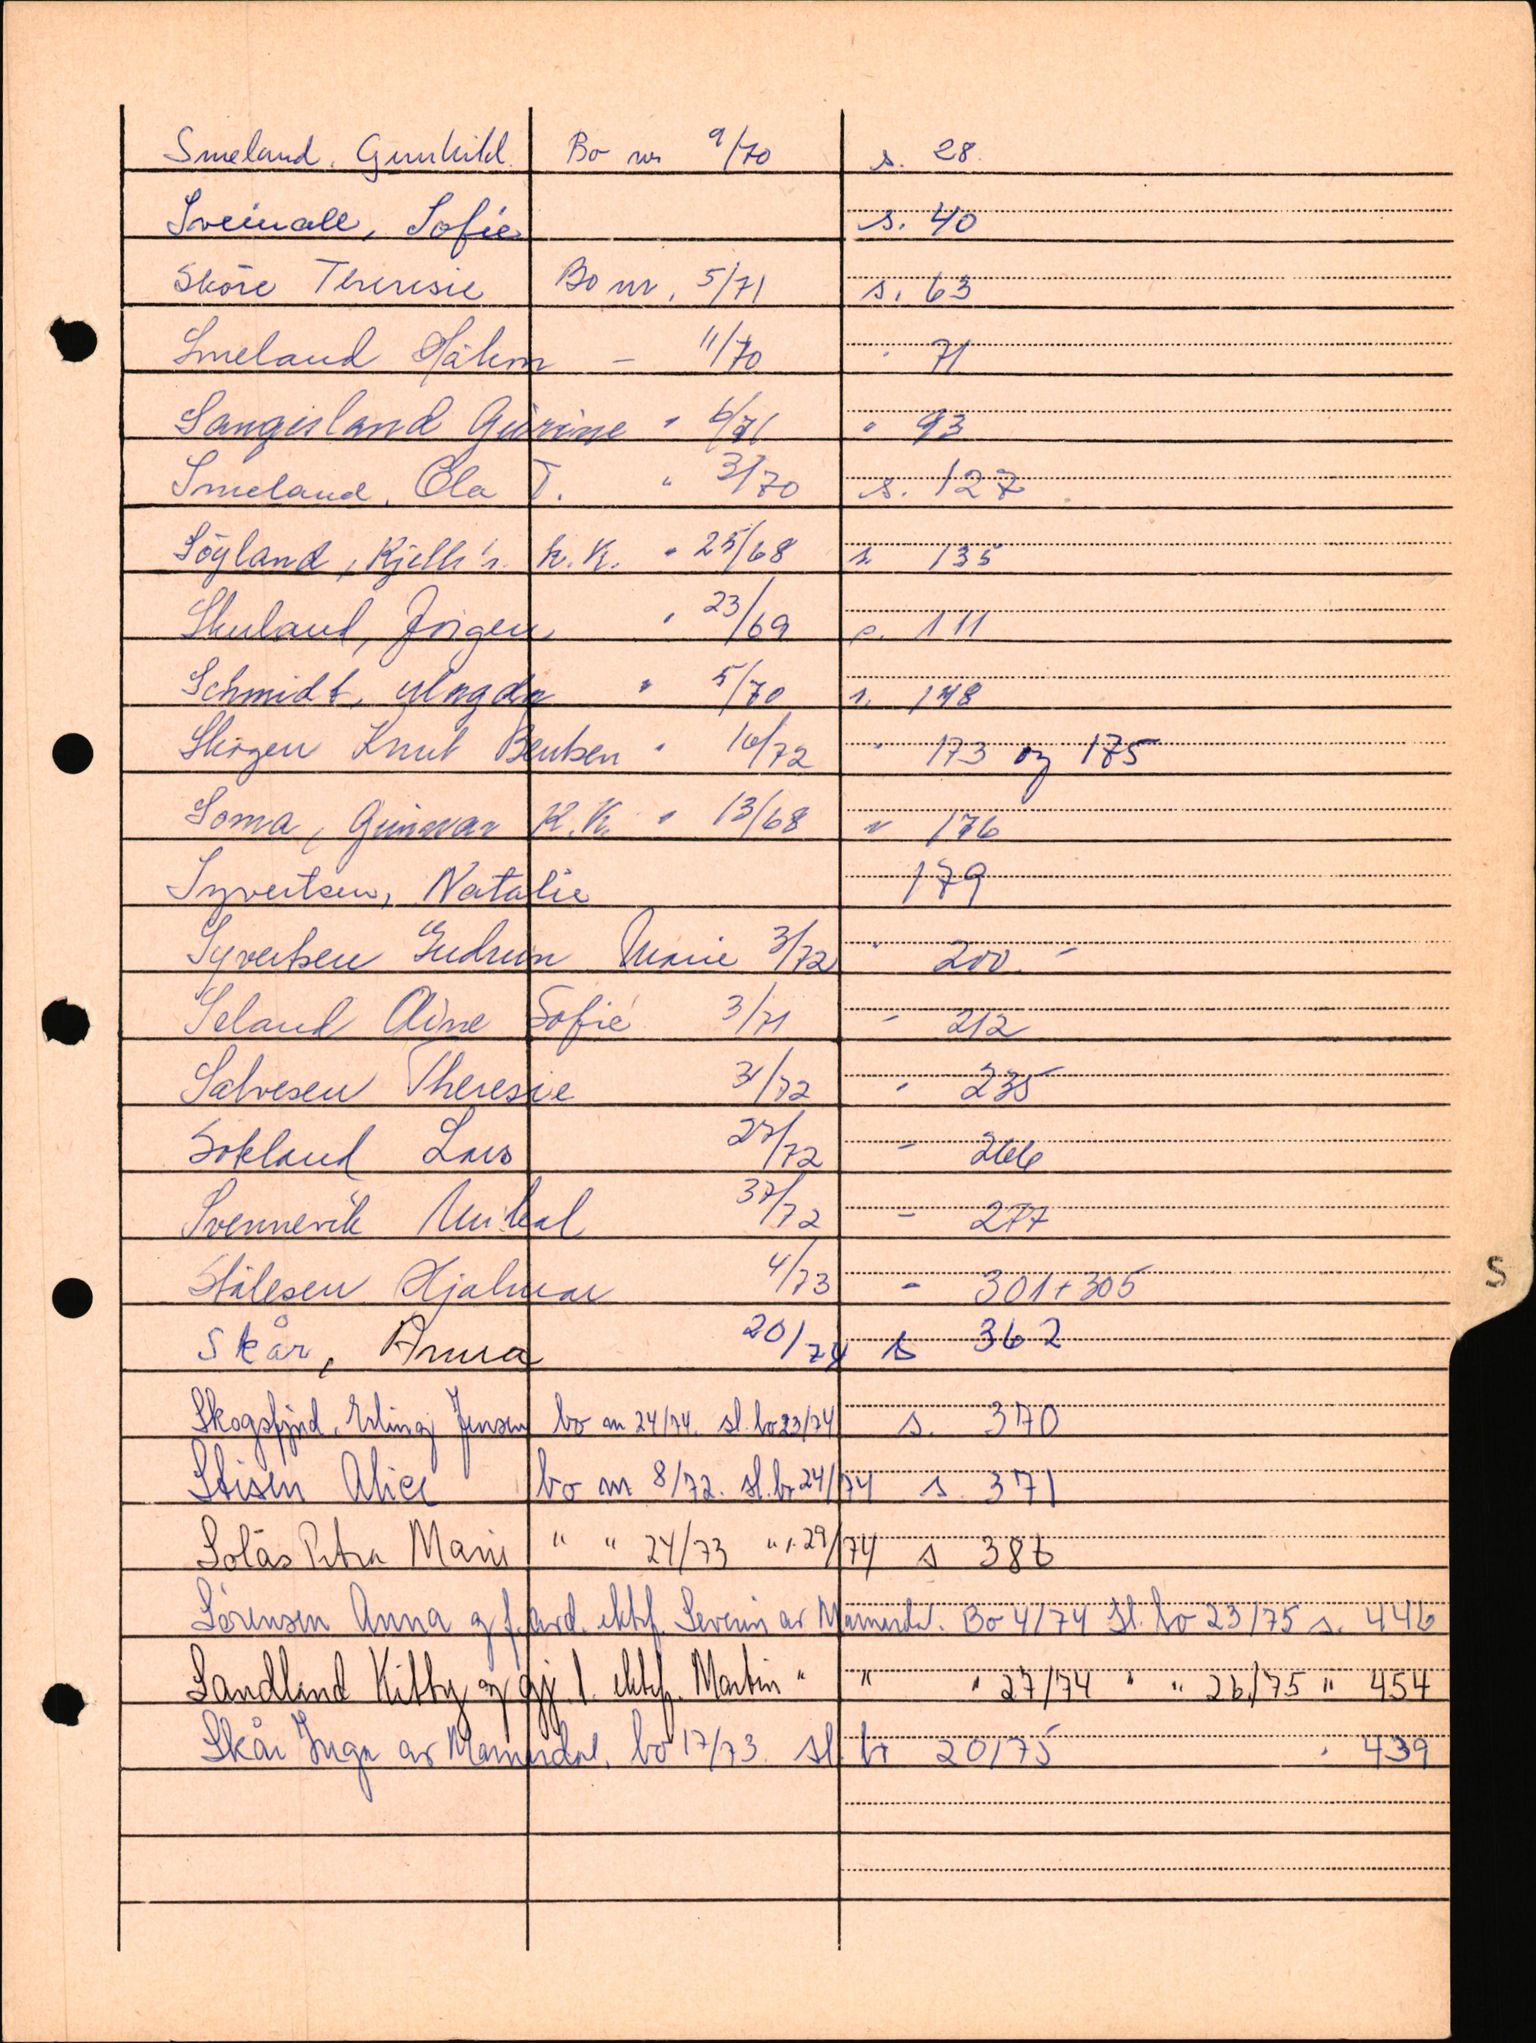 Smeland, Gunhild Bo nr 9/70 s. 28.
Sveinall, Sofie s. 40
Sköre Theresie Bo nr. 5/71 s. 63
Smeland Håkon - 11/70 " 71
Sangesland Gurine " 6/71 " 93
Smeland, Ola T. " 3/70 s. 127
Söyland, Kjell's k.K. " 25/68 s. 135
Skuland, Jörgen " 23/69 s. 111
Schmidt, Magda " 5/70 s. 148
Skogen Knut Bentsen " 10/72 " 173 og 175
Soma, Gunnar K.K. " 13/68 " 176
Syvertsen, Natalie 179
Syvertsen Gudrun Marie 3/72 " 200. -
Seland Oline Sofie 3/71 - 212
Salvesen Theresie 3/72 " 235
Sokland Lars 27/72 - 266
Svennevik Mikal 37/72 - 277
Stålesen Hjalmar 4/73 - 301 + 305
Skår, Anna 20/74 s 362
Skogsfjord, Erling Jensen bo nr 24/74. sl. bo 23/74 s. 370
Stisen Alice bo nr 8/72. sl. bo 24/74 s. 371
Solås Petra Marie " " 24/73 " " 29/74 s 386
Sörensen Anna og f. avd. ektef. Severin av Marnardal. Bo 4/74 sl. bo 23/75 s. 446
Sandland Kitty og gj. l. ektef. Martin " " " 27/74 " " 26/75 " 454
Skår Inga av Marnardal. bo 17/73. sl. bo 20/75 " 439
S